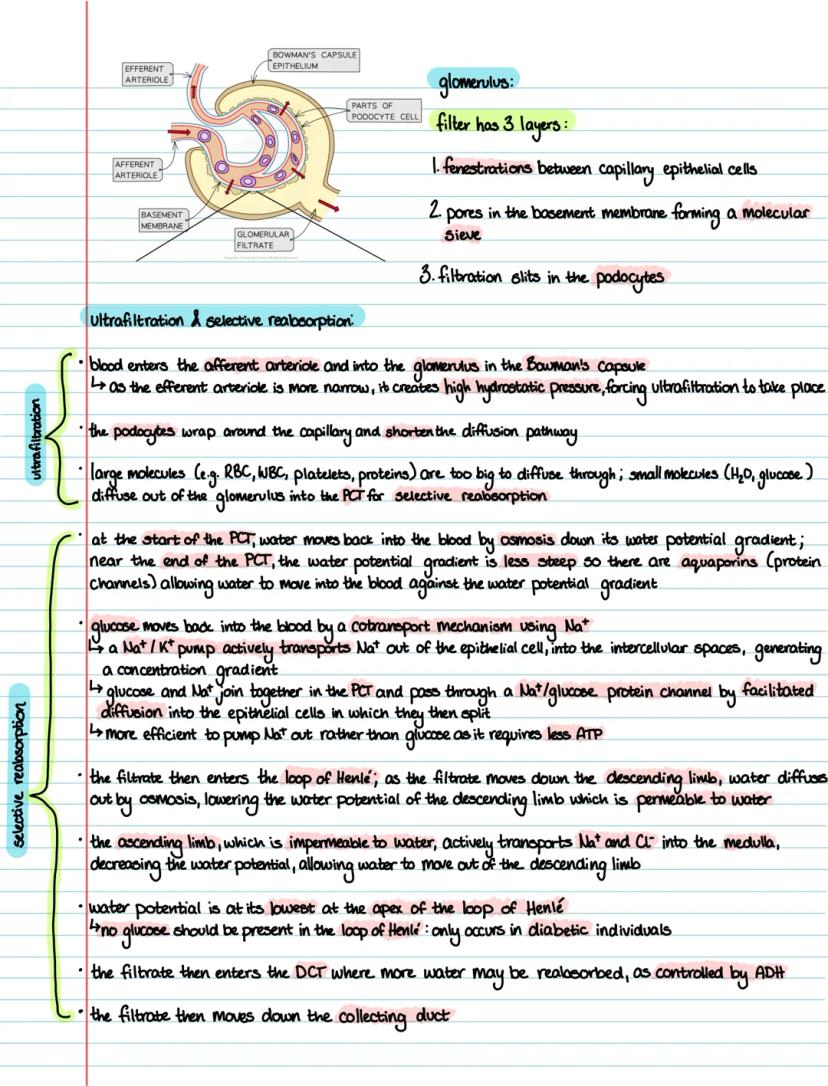 EFFERENT
ARTERIOLE
BOWMAN'S CAPSULE
EPITHELIUM
PARTS OF
PODOCYTE CELL
AFFERENT
ARTERIOLE
BASEMENT
MEMBRANE
GLOMERULAR
FILTRATE
glomerulus:
filter has 3 layers:
1. fenestrations between capillary epithelial cells
2. pores in the basement membrane forming a molecular
sieve
3. filtration slits in the podocytes
ultrafiltration & selective reabsorption:
ultrafiltration
• blood enters the afferent arteriole and into the glomerulus in the Bowman's capsule
↳ as the efferent arteriole is more narrow, it creates high hydrostatic pressure, forcing ultrafiltration to take place
• the podocytes wrap around the capillary and shorten the diffusion pathway
• large molecules (e.g. RBC, WBC, platelets, proteins) are too big to diffuse through; small molecules (H₂O, glucose)
diffuse out of the glomerulus into the PCT for selective reabsorption
selective reabsorption
• at the start of the PCT, water moves back into the blood by osmosis down its water potential gradient;
near the end of the PCT, the water potential gradient is less steep so there are aquaporins (protein
channels) allowing water to move into the blood against the water potential gradient
• glucose moves back into the blood by a cotransport mechanism using Na⁺
↳ a Na⁺/K⁺ pump actively transports Na⁺ out of the epithelial cell, into the intercellular spaces, generating
a concentration gradient
↳ glucose and Na⁺ join together in the PCT and pass through a Na⁺/glucose protein channel by facilitated
diffusion into the epithelial cells in which they then split
↳ more efficient to pump Na⁺ out rather than glucose as it requires less ATP
• the filtrate then enters the loop of Henlé; as the filtrate moves down the descending limb, water diffuses
out by osmosis, lowering the water potential of the descending limb which is permeable to water
• the ascending limb, which is impermeable to water, actively transports Na⁺ and Cl⁻ into the medulla,
decreasing the water potential, allowing water to move out of the descending limb
• water potential is at its lowest at the apex of the loop of Henlé
↳ no glucose should be present in the loop of Henlé: only occurs in diabetic individuals
• the filtrate then enters the DCT where more water may be reabsorbed, as controlled by ADH
• the filtrate then moves down the collecting duct